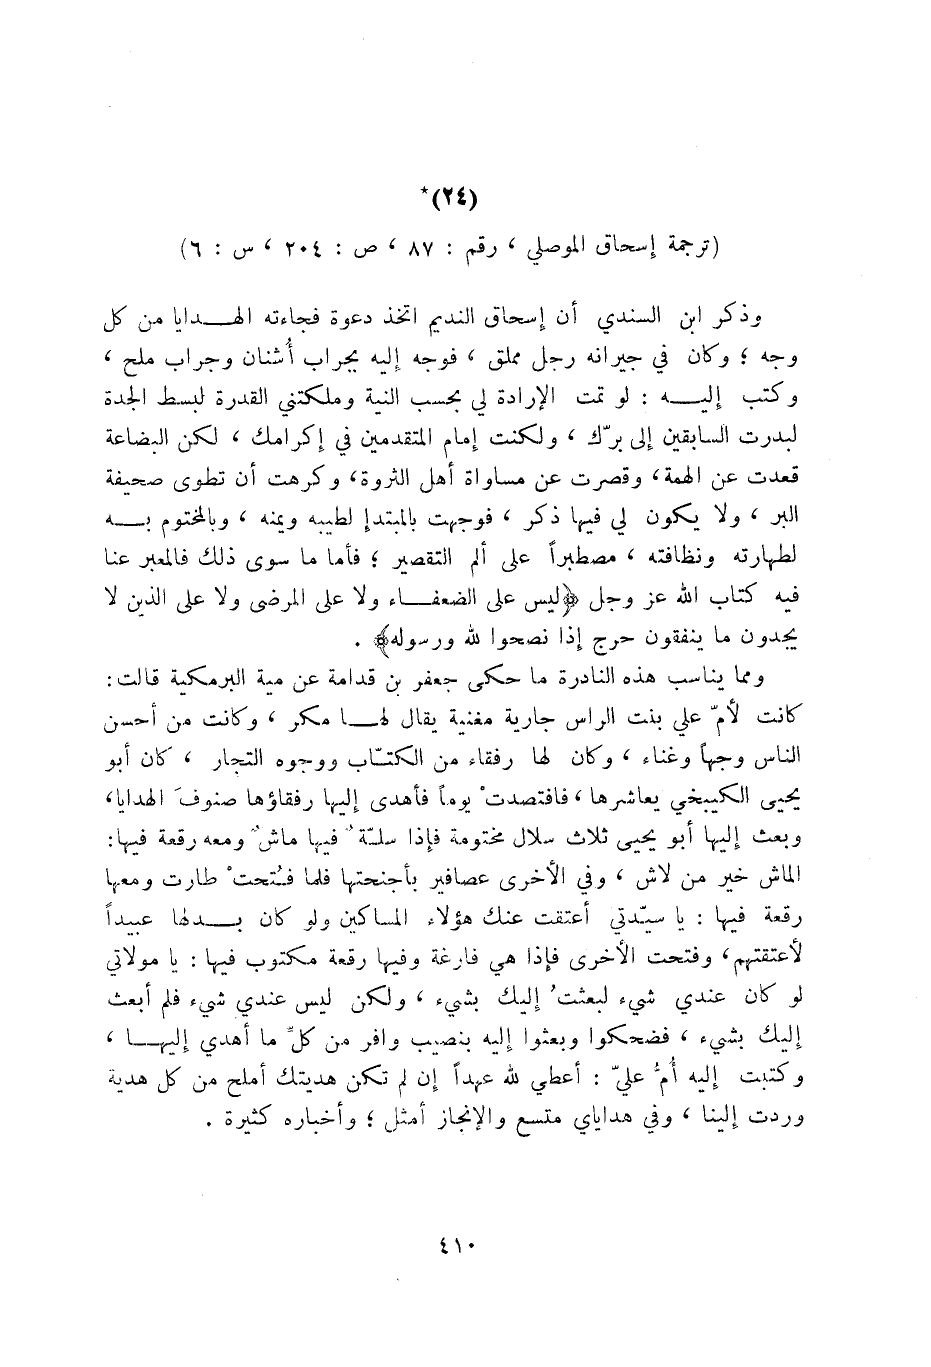 (٢٤)*
(ترجمة إسحاق الموصلي ، رقم : ٨٧ ، ص : ٢٠٤ ، س : ٦)
وذكر ابن السندي أن إسحاق النديم اتخذ دعوة فجاءته الهدايا من كل
وجه ؛ وكان في جيرانه رجل مملق ، فوجه إليه بجراب أُشنان وجراب ملح ،
وكتب إليه : لو تمت الإرادة لي بحسب النية وملكتني القدرة لبسط الجدة
لبدرت السابقين إلى برّك ، ولكنت إمام المتقدمين في إكرامك ، لكن البضاعة
قعدت عن الهمة ، وقصرت عن مساواة أهل الثروة ، وكرهت أن تطوى صحيفة
البر ، ولا يكون لي فيها ذكر ، فوجهت بالمبتدإ لطيبه ويمنه ، وبالمختوم به
لطهارته ونظافته ، مصطبراً على ألم التقصير ؛ فأما ما سوى ذلك فالمعبر عنا
فيه كتاب الله عز وجل ﴿ليس على الضعفاء ولا على المرضى ولا على الذين لا
يجدون ما ينفقون حرج إذا نصحوا لله ورسوله﴾ .
ومما يناسب هذه النادرة ما حكى جعفر بن قدامة عن مية البرمكية قالت :
كانت لأمّ علي بنت الراس جارية مغنية يقال لها مكر ، وكانت من أحسن
الناس وجهاً وغناء ، وكان لها رفقاء من الكتّاب ووجوه التجار ، كان أبو
يحيى الكبيخي يعاشرها ، فافتصدتْ يوماً فأهدى إليها رفقاؤها صنوفَ الهدايا ،
وبعث إليها أبو يحيى ثلاث سلال مختومة فإذا سلّة ٌ فيها ماش ٌ ومعه رقعة فيها :
الماش خير من لاش ، وفي الأخرى عصافير بأجنحتها فلما فُتحتْ طارت ومعها
رقعة فيها : يا سيّدتي أعتقت عنك هؤلاء المساكين ولو كان بدلها عبيداً
لأعتقتهم ، وفتحت الأخرى فإذا هي فارغة وفيها رقعة مكتوب فيها : يا مولاتي
لو كان عندي شيء لبعثتُ إليك بشيء ، ولكن ليس عندي شيء فلم أبعث
إليك بشيء ، فضحكوا وبعثوا إليه بنصيب وافر من كلّ ما أهدي إليها ،
وكتبت إليه أُمُّ عليّ : أعطي لله عهداً إن لم تكن هديتك أملح من كل هدية
وردت إلينا ، وفي هداياي متسع والإنجاز أمثل ؛ وأخباره كثيرة .
٤١٠